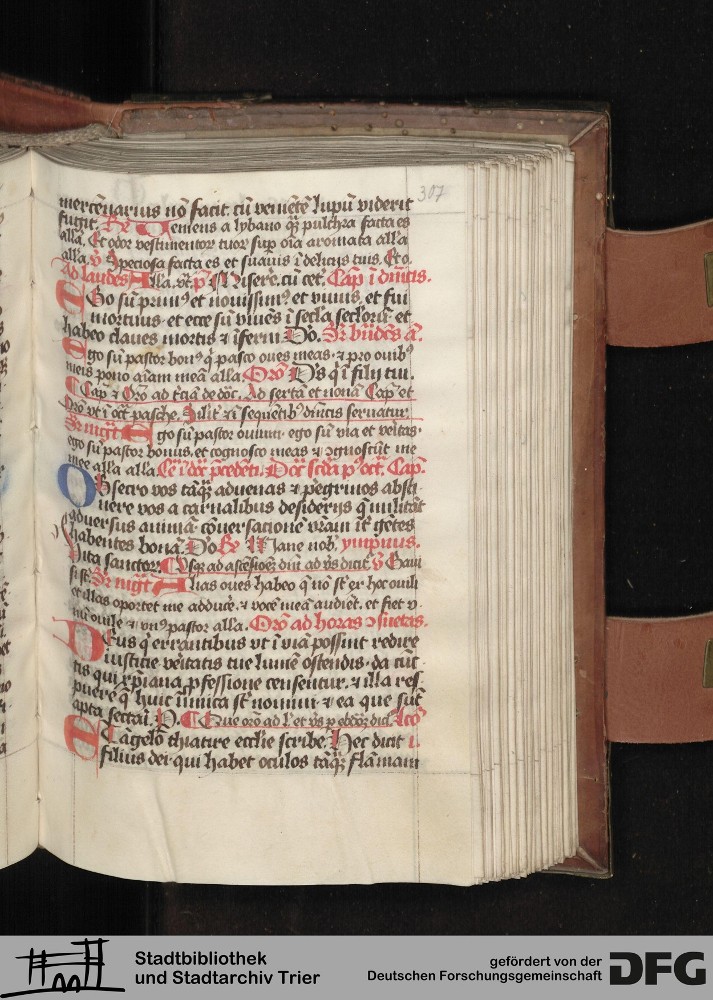 307
mercēnarius nō facit. cū veniētē lupū viderit
fugit. Rͦ Veniens a lybano qͣꝫ pulchra facta es
alla. Et odor vestimentoꝝ tuoꝝ sup oīa aromata alla
alla. v̊ Speciosa facta es et suauis ī delicijs tuis. Et o.
Ad laudes Alla. vt. pͥ Misere. cū cet. Cap ī dīnicis.
Ego sū primꝰ et nouissimꝰ et viuus. et fui
mortuus. et ecce sū viuēs ī secla secloꝝ. et
habeo claues mortis et īferni. Do. Sr būdcs a.
Ego sū pastor bonꝰ q̇ pasco oues meas. ⁊ pro ouibꝰ
meis pono aīam meā alla. Orō Ds q̇ ī filij tui.
Cap ⁊ Orō ad tciā de dōc. Ad sextā et nonā Cap et
Orō vt ī oct pasche. Silīt ⁊ ī sequētibꝰ dīnicis seruatur.
Sr mgt Ego sū pastor ouium. ego sū via et veītas.
ego sū pastor bonus. et cognosco meas ⁊ ꝯgnoscūt me
mee alla alla.
Obsecro vos tāqͣꝫ aduenas ⁊ pegrinos absti
nere vos a carnalibus desiderijs q̄ militāt
aduersus animā. cōuersationē vrām īt gētes
habentes bonā. Do. Rͦ Mane nob. ympnus.
Vita sanctoꝝ. Usqꝫ ad ascēsiōeꝫ dni ad vs dicit. v̊ Gaui
si st. Sr mgt Alias oues habeo q̄ nō st ex hoc ouili
et illas oportet me adduce. ⁊ vocē meā audiēt. et fiet v
nū ouile ⁊ vnꝰ pastor alla. Orō ad horas ꝯsuetas.
Deus q̇ errantibus vt ī viā possint redire
iusticie veītatis tue lumē ostendis. da cūc
tis qui xp̄iana ꝓfessione censentur. ⁊ illa res
puere q̄ huic īimica st nomini. ⁊ ea que sūt
apta sectari. P.
Et āgelo thiatire ecclie scribe. Hec dicit
filius dei. qui habet oculos tāqͣꝫ flāmam
Stadtbibliothek
und Stadtarchiv Trier
gefördert von der
Deutschen Forschungsgemeinschaft
DFG